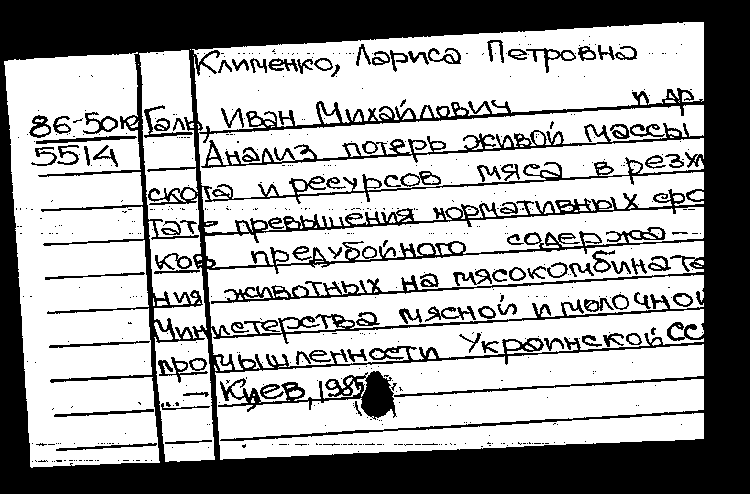 Клименко, Лариса Петровна
86-50ю Галь, Иван Михайлович и др.
5514 Анализ потерь живой массы
скота и ресурсов мяса в резул
тате превышения нормативных сро
ков предубойного содержа-
ния животных на мясокомбината
Министерства мясной и молочной
промышленности Украинской СС
...- Киев, 1985